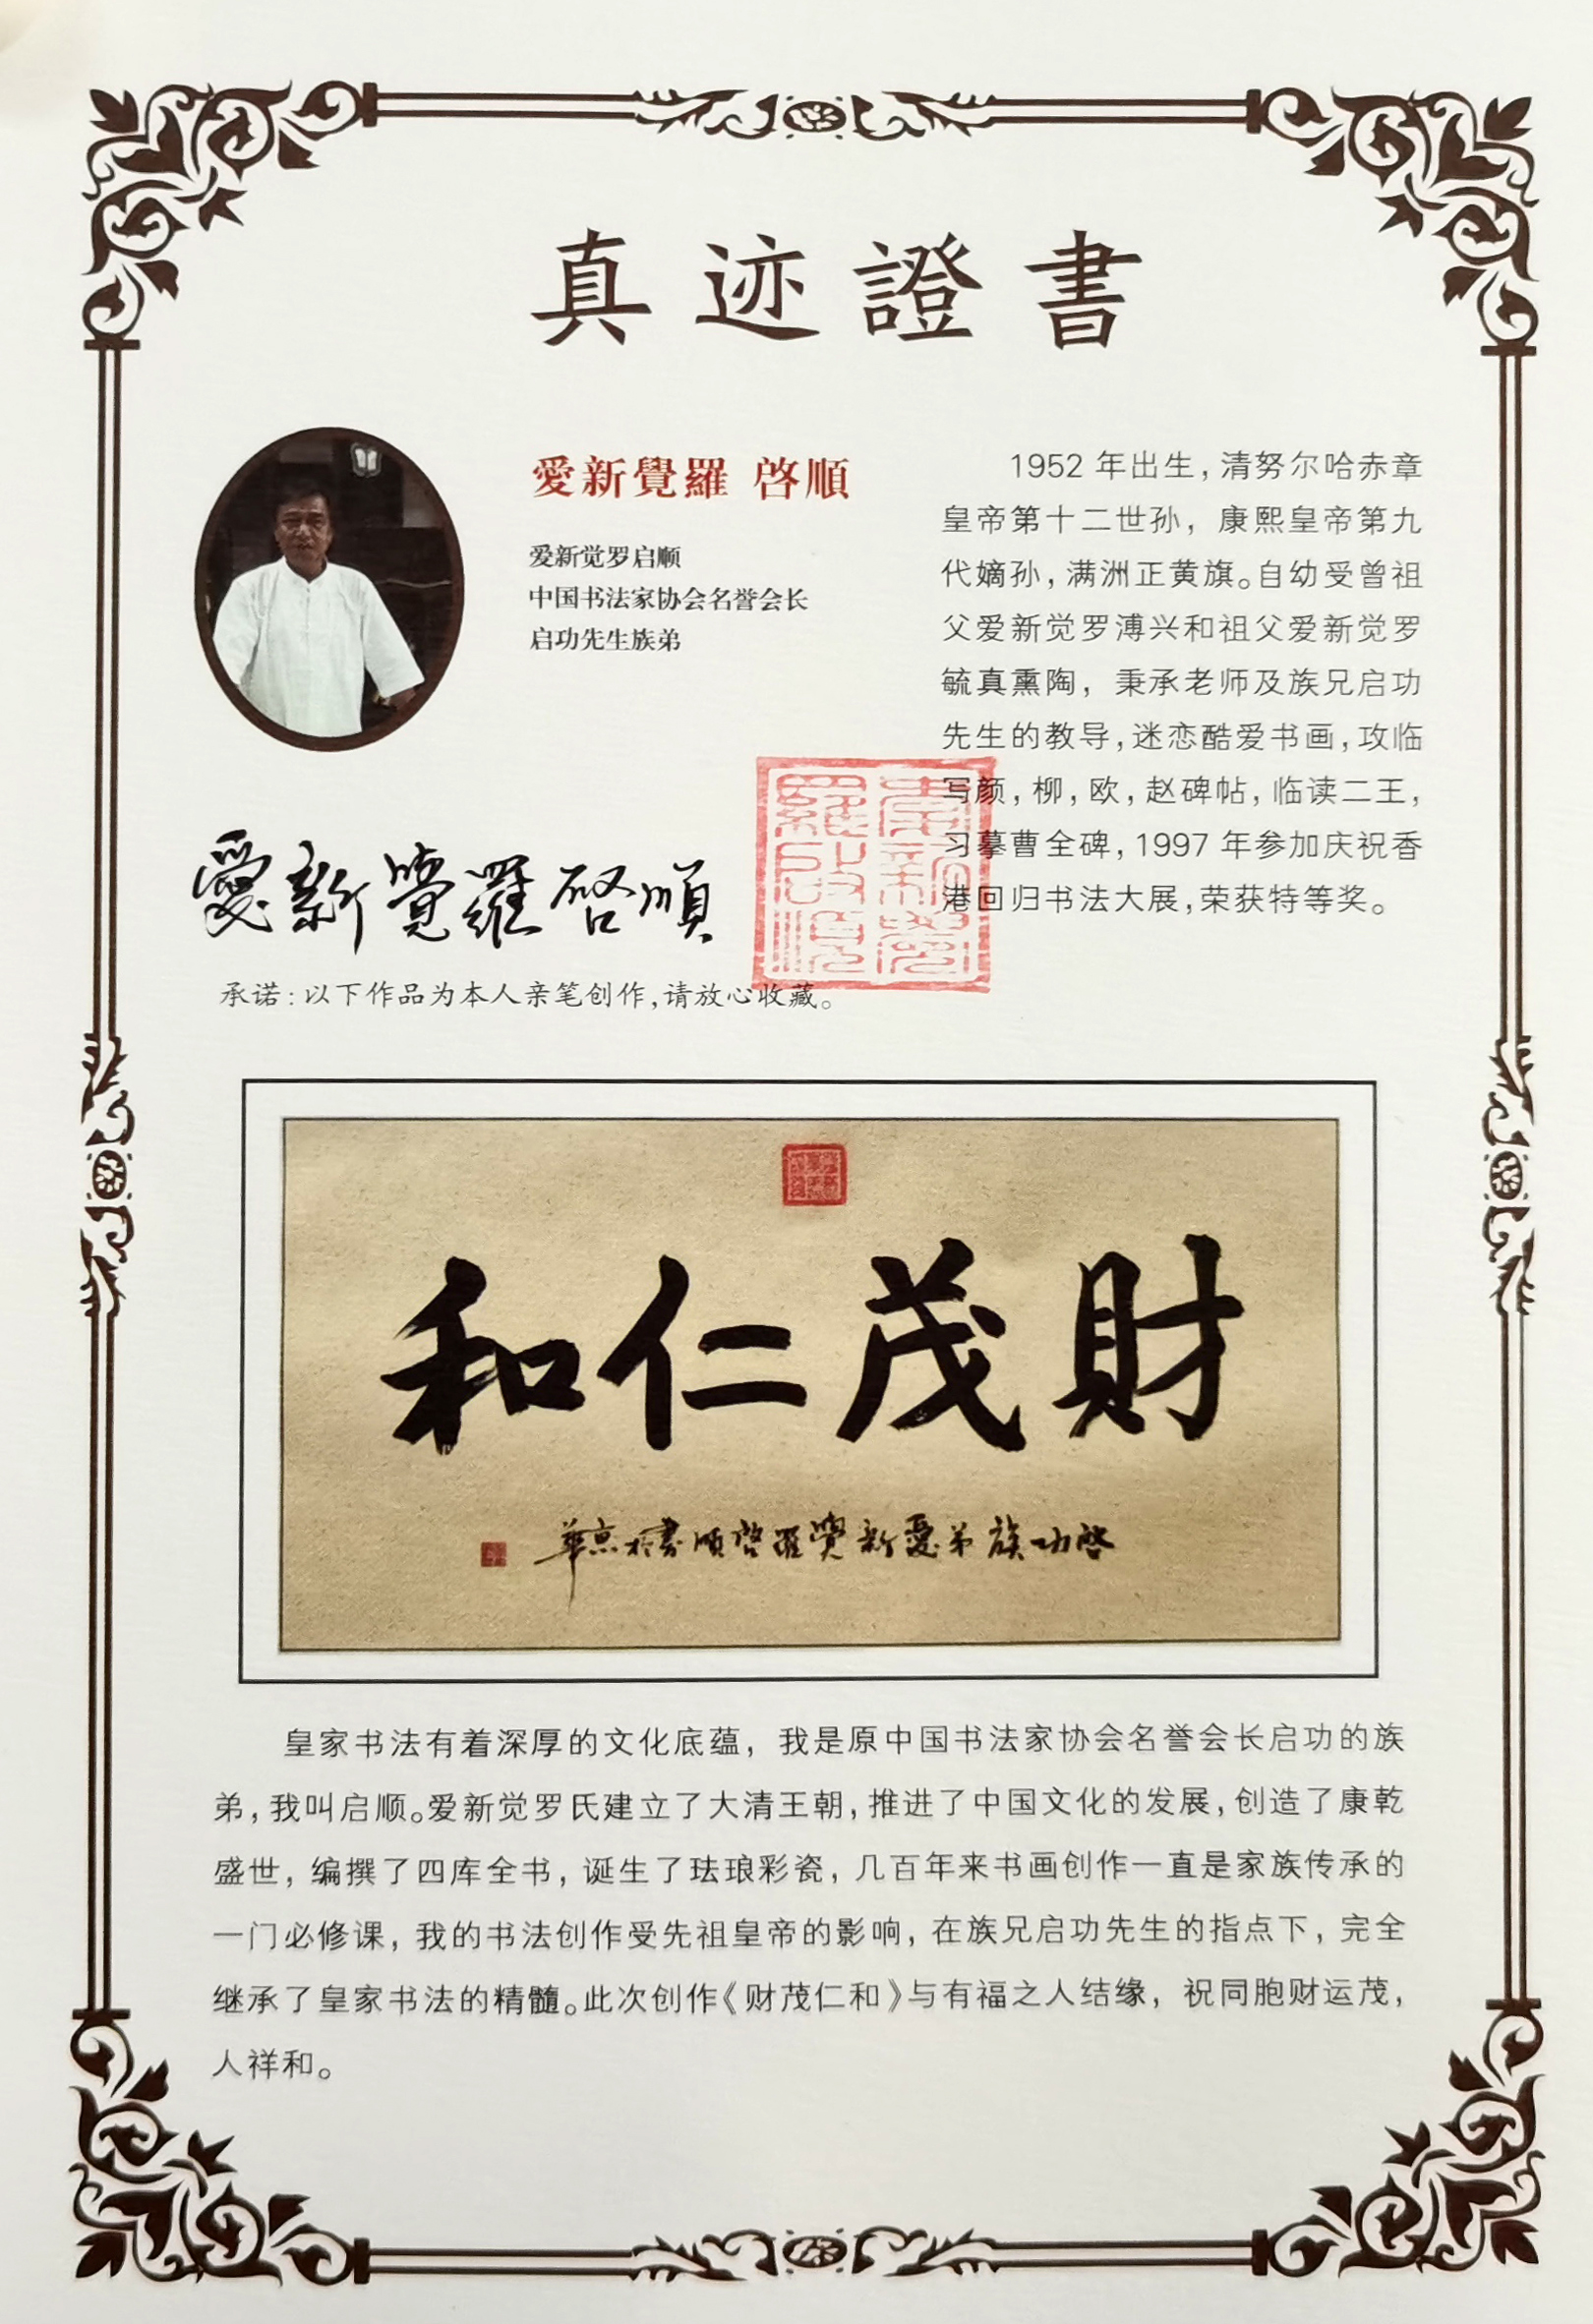 真迹證書
愛新覺羅 啓順
爱新觉罗启顺
中国书法家协会名誉会长
启功先生族弟
1952 年出生，清努尔哈赤章
皇帝第十二世孙，康熙皇帝第九
代嫡孙，满洲正黄旗。自幼受曾祖
父爱新觉罗溥兴和祖父爱新觉罗
毓真熏陶，秉承老师及族兄启功
先生的教导，迷恋酷爱书画，攻临
写颜，柳，欧，赵碑帖，临读二王，
习摹曹全碑，1997 年参加庆祝香
港回归书法大展，荣获特等奖。
愛新覺羅啓順
承诺：以下作品为本人亲笔创作，请放心收藏。
財茂仁和
啓功族弟愛新覺羅啓順書於京華
皇家书法有着深厚的文化底蕴，我是原中国书法家协会名誉会长启功的族
弟，我叫启顺。爱新觉罗氏建立了大清王朝，推进了中国文化的发展，创造了康乾
盛世，编撰了四库全书，诞生了珐琅彩瓷，几百年来书画创作一直是家族传承的
一门必修课，我的书法创作受先祖皇帝的影响，在族兄启功先生的指点下，完全
继承了皇家书法的精髓。此次创作《财茂仁和》与有福之人结缘，祝同胞财运茂，
人祥和。